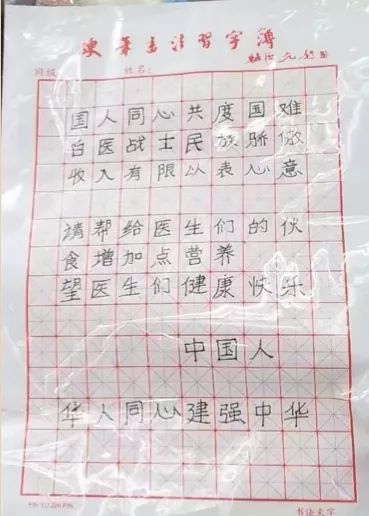 硬笔书法习字簿
班级:
姓名:
国人同心共度国难
白医战士民族骄傲
收入有限以表心意
请帮给医生们的伙
食增加点营养
望医生们健康快乐
中国人
华人同心建强中华
书法文字